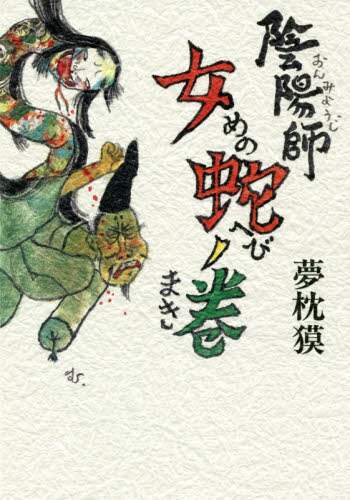 陰陽師
おんみようじ
女蛇ノ巻
めのへびまき
夢枕獏
む.